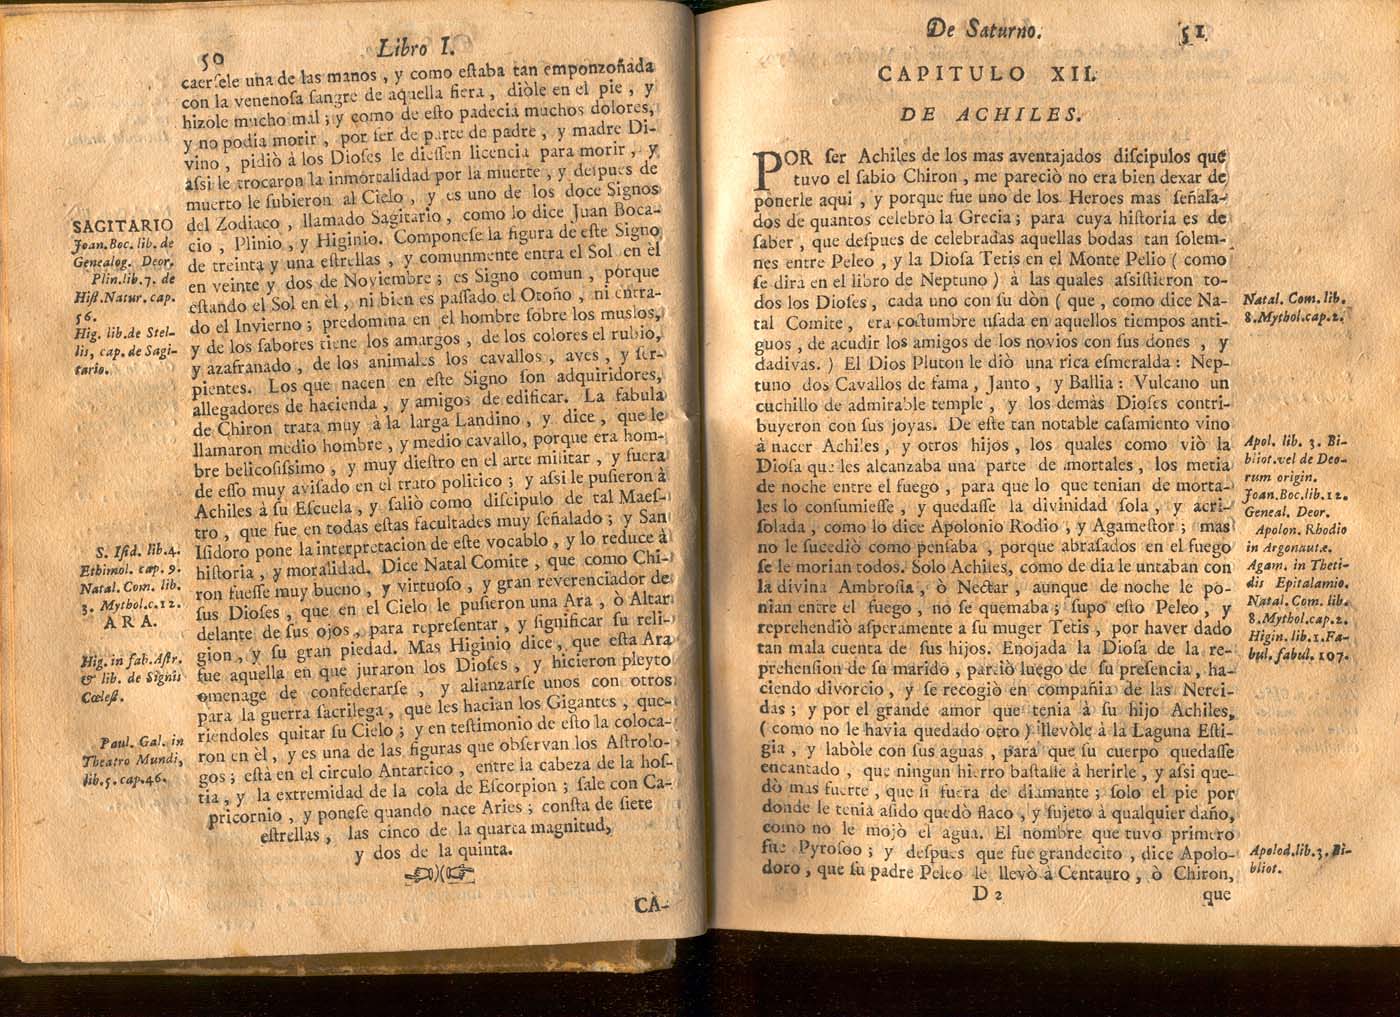 50
Libro I.
caersele una de las manos, y como estaba tan emponzoñada
con la venenosa sangre de aquella fiera, diòle en el pie, y
hizole mucho mal; y como de esto padecia muchos dolores,
y no podia morir, por ser de parte de padre, y madre Di-
vino, pidiò à los Dioses le diessen licencia para morir, y
assi le trocaron la inmortalidad por la muerte, y despues de
muerto le subieron al Cielo, y es uno de los doce Signos
del Zodiaco, llamado Sagitario, como lo dice Juan Boca-
cio, Plinio, y Higinio. Componese la figura de este Signo
de treinta y una estrellas, y comunmente entra el Sol en èl
en veinte y dos de Noviembre; es Signo comun, porque
estando el Sol en èl, ni bien es passado el Otoño, ni entra-
do el Invierno; predomina en el hombre sobre los muslos,
y de los sabores tiene los amargos, de los colores el rubio,
y azafranado, de los animales los cavallos, aves, y ser-
pientes. Los que nacen en este Signo son adquiridores,
allegadores de hacienda, y amigos de edificar. La fabula
de Chiron trata muy à la larga Landino, y dice, que le
llamaron medio hombre, y medio cavallo, porque era hom-
bre belicosissimo, y muy diestro en el arte militar, y fuera
de esso muy avisado en el trato politico; y assi le pusieron à
Achiles à su Escuela, y saliò como discipulo de tal Maes-
tro, que fue en todas estas facultades muy señalado; y San
Isidoro pone la interpretacion de este vocablo, y lo reduce à
historia, y moralidad. Dice Natal Comite, que como Chi-
ron fuesse muy bueno, y virtuoso, y gran reverenciador de
sus Dioses, que en el Cielo le pusieron una Ara, ò Altar
delante de sus ojos, para representar, y significar su reli-
gion, y su gran piedad. Mas Higinio dice, que esta Ara
fue aquella en que juraron los Dioses, y hicieron pleyto
omenage de confederarse, y alianzarse unos con otros
para la guerra sacrilega, que les hacian los Gigantes, que-
riendoles quitar su Cielo; y en testimonio de esto la coloca-
ron en èl, y es una de las figuras que observan los Astrolo-
gos; està en el circulo Antartico, entre la cabeza de la hos-
tia, y la extremidad de la cola de Escorpion; sale con Ca-
pricornio, y ponese quando nace Aries; consta de siete
estrellas, las cinco de la quarta magnitud,
y dos de la quinta.
CA-
SAGITARIO
Joan. Boc. lib. de
Genealog. Deor.
Plin. lib. 7. de
Hist. Natur. cap.
56.
Hig. lib. de Stel-
lis, cap. de Sagi-
tario.
S. Isid. lib. 4.
Ethimol. cap. 9.
Natal. Com. lib.
3. Mythol. c. 12.
ARA.
Hig. in fab. Astr.
& lib. de Signis
Cœlest.
Paul. Gal. in
Theatro Mundi,
lib. 5. cap. 46.
De Saturno.
51
CAPITULO XII.
DE ACHILES.
POR ser Achiles de los mas aventajados discipulos que
tuvo el sabio Chiron, me pareciò no era bien dexar de
ponerle aqui, y porque fue uno de los Heroes mas señala-
dos de quantos celebrò la Grecia; para cuya historia es de
saber, que despues de celebradas aquellas bodas tan solem-
nes entre Peleo, y la Diosa Tetis en el Monte Pelio (como
se dirà en el libro de Neptuno) à las quales assistieron to-
dos los Dioses, cada uno con su dòn (que, como dice Na-
tal Comite, era costumbre usada en aquellos tiempos anti-
guos, de acudir los amigos de los novios con sus dones, y
dadivas.) El Dios Pluton le diò una rica esmeralda: Nep-
tuno dos Cavallos de fama, Janto, y Ballia: Vulcano un
cuchillo de admirable temple, y los demàs Dioses contri-
buyeron con sus joyas. De este tan notable casamiento vino
à nacer Achiles, y otros hijos, los quales como viò la
Diosa que les alcanzaba una parte de mortales, los metia
de noche entre el fuego, para que lo que tenian de morta-
les lo consumiesse, y quedasse la divinidad sola, y acri-
solada, como lo dice Apolonio Rodio, y Agamestor; mas
no le sucediò como pensaba, porque abrasados en el fuego
se le morian todos. Solo Achiles, como de dia le untaban con
la divina Ambrosia, ò Nectar, aunque de noche le po-
nian entre el fuego, no se quemaba; supo esto Peleo, y
reprehendiò asperamente à su muger Tetis, por haver dado
tan mala cuenta de sus hijos. Enojada la Diosa de la re-
prehension de su marido, partiò luego de su presencia, ha-
ciendo divorcio, y se recogiò en compañia de las Nerei-
das; y por el grande amor que tenia à su hijo Achiles,
(como no le havia quedado otro) llevòle à la Laguna Esti-
gia, y labòle con sus aguas, para que su cuerpo quedasse
encantado, que ningun hierro bastasse à herirle, y assi que-
dò mas fuerte, que si fuera de diamante; solo el pie por
donde le tenia asido quedò flaco, y sujeto à qualquier daño,
como no le mojò el agua. El nombre que tuvo primero
fue Pyrosoo; y despues que fue grandecito, dice Apolo-
doro, que su padre Peleo le llevò à Centauro, ò Chiron,
D 2
que
Natal. Com. lib.
8. Mythol. cap. 2.
Apol. lib. 3. Bi-
bliot. vel de Deo-
rum origin.
Joan. Boc. lib. 12.
Geneal. Deor.
Apolon. Rhodio
in Argonautæ.
Agam. in Theti-
dis Epitalamio.
Natal. Com. lib.
8. Mythol. cap. 2.
Higin. lib. 1. Fa-
bul. fabul. 107.
Apolod. lib. 3. Bi-
bliot.